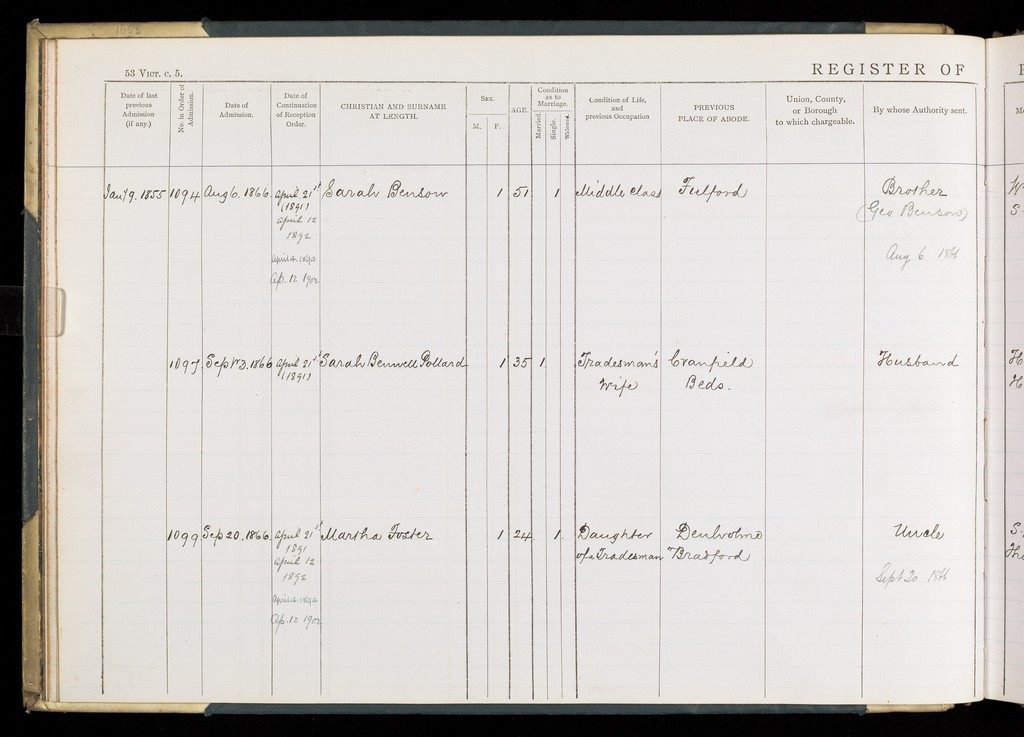 53 VICT. c. 5.
REGISTER OF
Date of last previous Admission (if any.)
No. in Order of Admission.
Date of Admission.
Date of Continuation of Reception Order.
CHRISTIAN AND SURNAME AT LENGTH.
SEX.
M.
F.
AGE.
Condition as to Marriage.
Married.
Single.
Widowed.
Condition of Life, and previous Occupation
PREVIOUS PLACE OF ABODE.
Union, County, or Borough to which chargeable.
By whose Authority sent.
Jany 9. 1855 1094 Aug 6. 1866. April 21st Sarah Benson 1 51 1 Middle Class Fulford Brother
(1891) (Geo Benson)
April 12
1892
Aug 6 1866
Ap. 12 1902
1097 Sept 13. 1866 April 21st Sarah Benwell Pollard 1 35 1. Tradesman's Cranfield Husband
(1891) Wife Beds.
1099 Sep 20. 1866. April 21st Martha Foster 1 24. 1. Daughter Denholme Uncle
1891 of a Tradesman Bradford
April 12
1892
Sept 20 1866
Ap. 12 1902